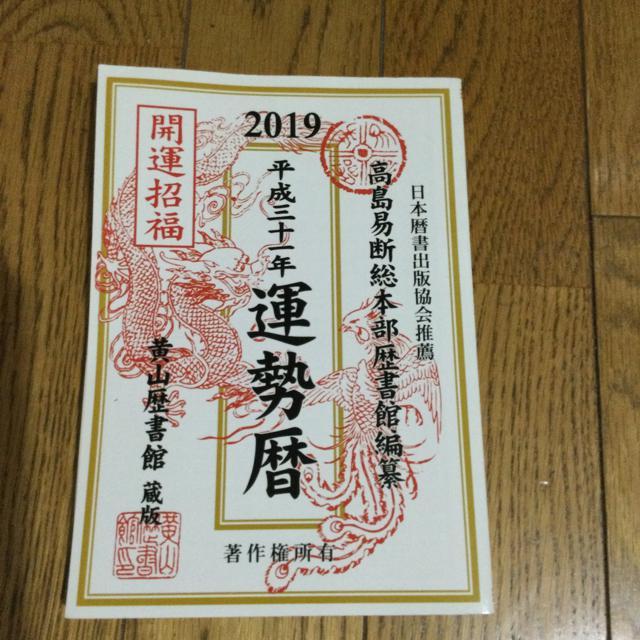 2019
日本暦書出版協会推薦
高島易断総本部歴書館編纂
平成三十一年
運勢暦
開運招福
黄山歴書館 蔵版
著作権所有
黄山
歴書
館印